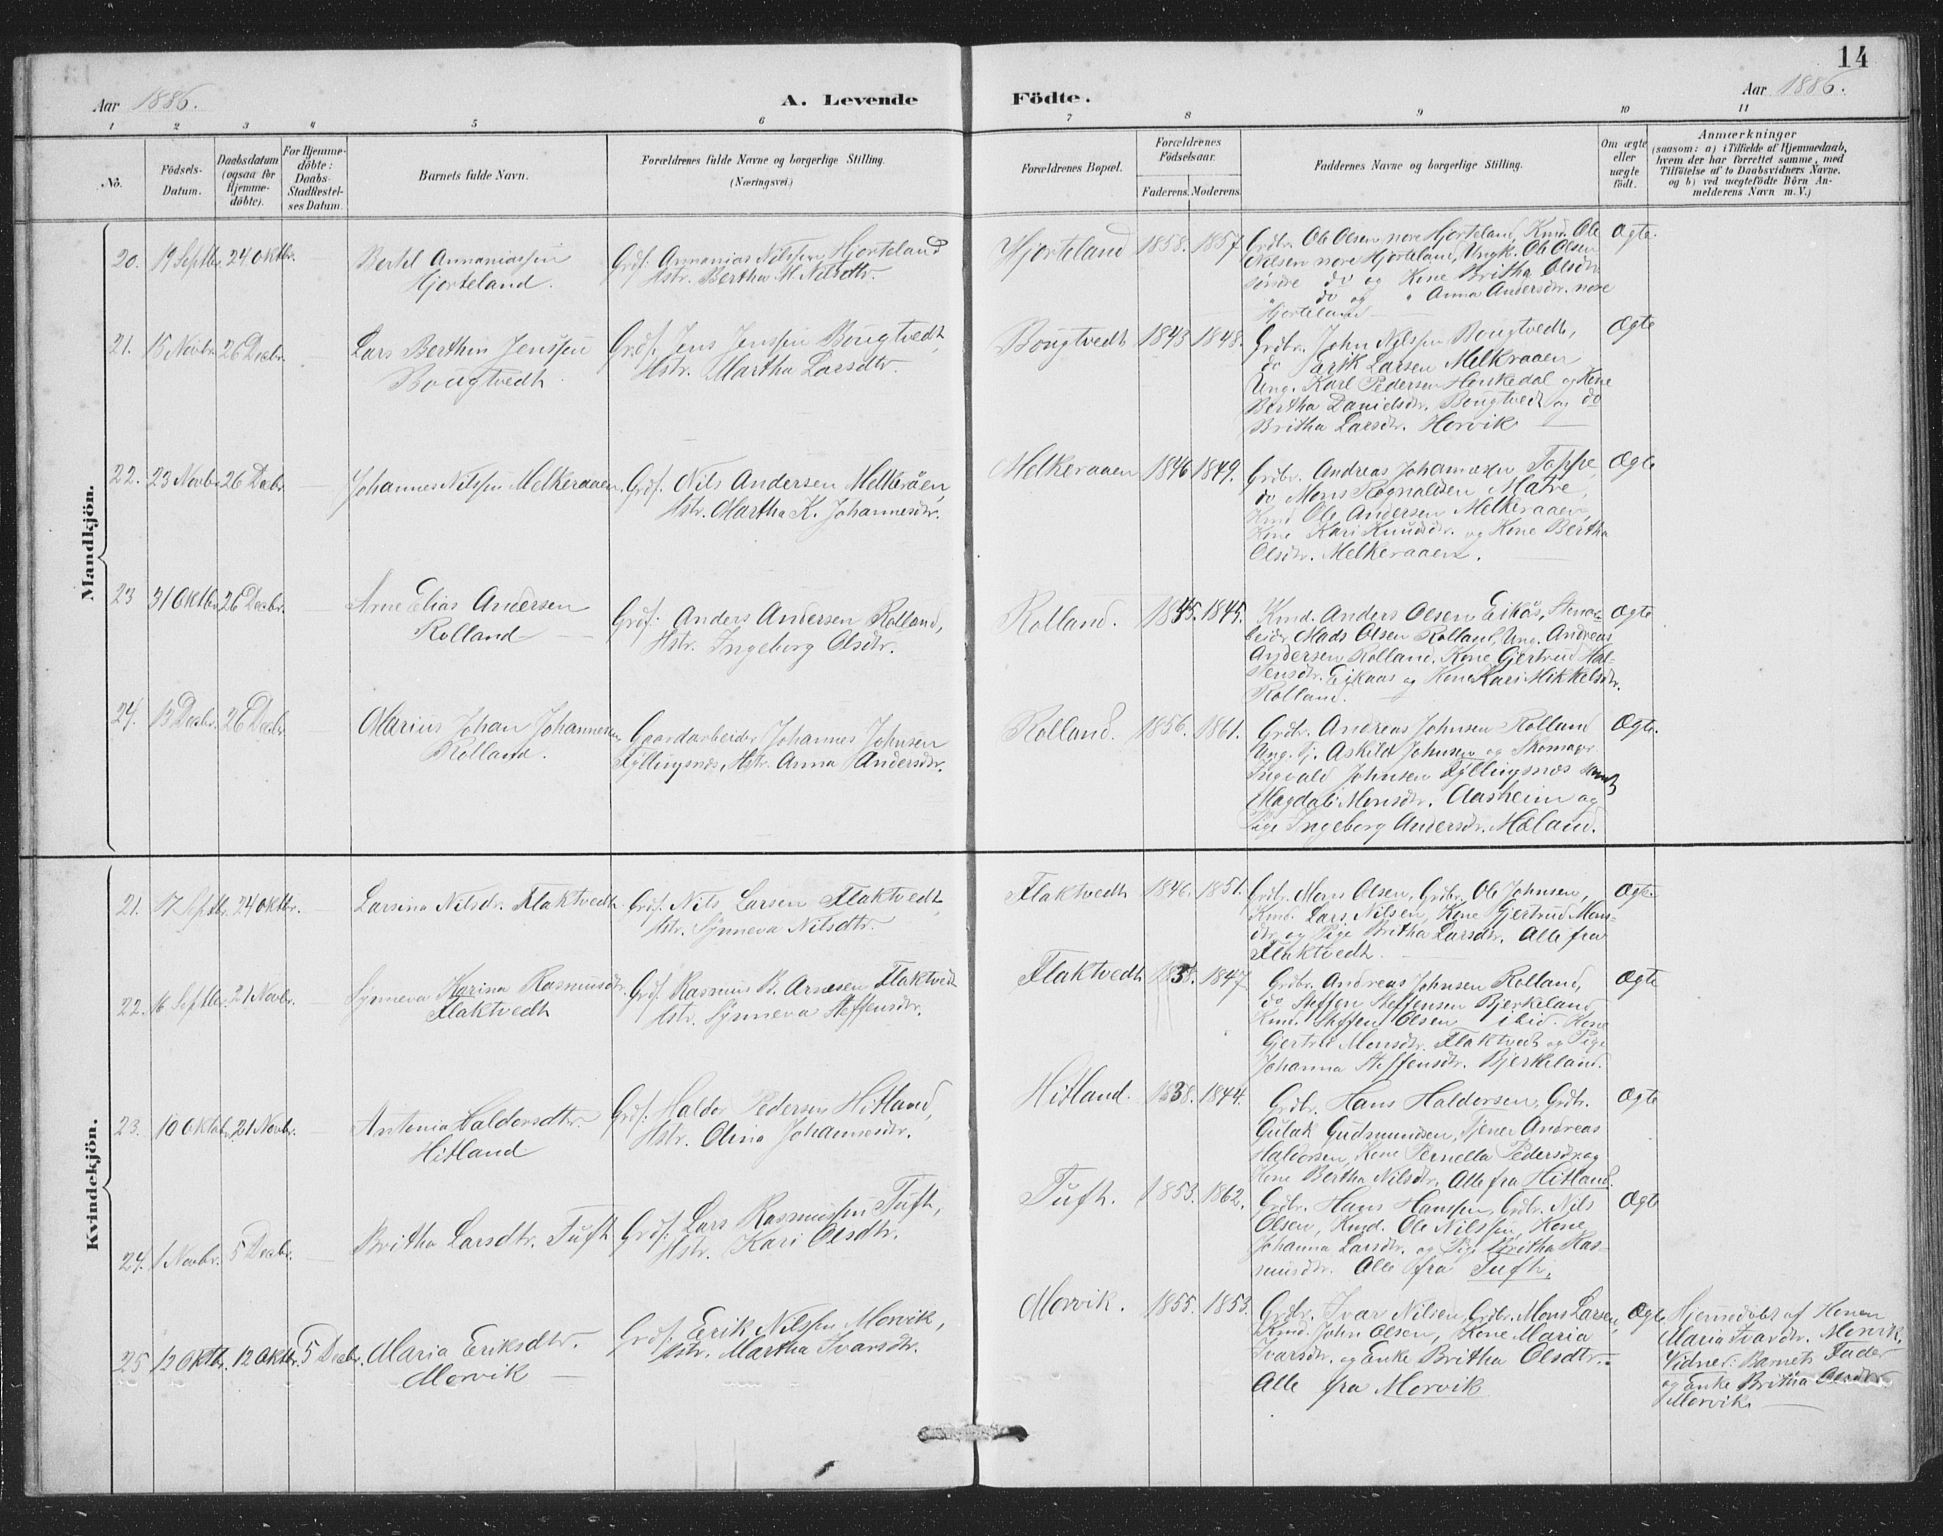 14
Aar 1886.
A. Levende Födte.
Aar 1886.
1 2 3 4 5 6 7 8 9 10 11
No.
Födsels-Datum.
Daabsdatum (ogsaa for Hjemme-döbte).
For Hjemme-döbte: Daabs-Stadfæstel-ses Datum.
Barnets fulde Navn.
Forældrenes fulde Navne og borgerlige Stilling. (Næringsvei.)
Forældrenes Bopæl.
Forældrenes Födselsaar.
Faderens. Moderens.
Faddernes Navne og borgerlige Stilling.
Om ægte eller uægte födt.
Anmærkninger
(saasom: a) i Tilfælde af Hjemmedaab,
hvem der har forrettet samme, med
Tilföielse af to Daabsvidners Navne.
og b) ved uægtefödte Börn An-
melderens Navn m. V.)
Mandkjön.
20. 19 Septbr. 24 Oktbr. Bertel Annaniassen
Hjorteland.
Grdf. Annanias Nilssen Hjorteland
Hstr. Bertha M. Nilsdtr.
Hjorteland 1858. 1857.
Grdbr. Ole Olsen nore Hjorteland, Kmd. Ole
Nilsen nore Hjorteland, Ungk. Ole Olsen
söndre do og Kone Britha Olsdtr
" do og " Anna Andersdr. nore
Hjorteland
Ægte.
21. 15 Novbr. 26 Decbr. Lars Berthin Jenssen
Bougtvedt.
Grdf. Jens Jenssen Bougtvedt,
Hstr. Martha Larsdtr.
Bougtvedt 1843 1848.
Grdbr. John Nilssen Bougtvedt,
do Larsen Melkraaen
Ung. Karl Pedersen Henkedal og Kone
Bertha Danielsdr. Bougtvedt og do
Britha Larsdr. Horvik
Ægte
22. 23 Novbr. 26 Decbr. Johannes Nilssen Melkeraaen
Grdf. Nils Andersen Melkeråen,
Hstr. Martha K. Johannesdr.
Melkeraaen 1846 1849.
Grdbr. Andreas Johannessen Toppe,
do Mons Rognaldsen Matre,
Kmd Ole Andersen Melkeraaen,
Kone Kari Knudsdr. og Kone Bertha
Olsdtr. Melkeraaen.
Ægte
23 31 Oktbr. 26 Decbr. Arne Elias Andersen
Rolland
Grdf. Anders Andersen Rolland,
Hstr. Ingeborg Olsdtr.
Rolland. 1845. 1845.
Kmd. Anders Olsen Eikås, Stenar-
beider Mads Olsen Rolland, Ung. Andreas
Andersen Rolland, Kone Gjertrud Hal-
stensdr. Eikaas og Kone Kari Mikkelsdr.
Rolland.
Ægte
24. 13 Decbr. 26 Decbr. Marius Johan Johannesen
Rolland.
Gaardarbeider Johannes Johnsen
Fyllingsnes, Hstr. Anna Andersdr.
Rolland. 1856. 1861.
Grdbr. Andreas Johnsen Rolland
Ung. Askild Johnsen og Skomager
Ingvald Johnsen Fyllingsnæs samt
Magdali Monsdr. Aasheim og
Pige Ingeborg Andersdr. Mæland.
Ægte.
Kvindekjön.
21. 17 Septbr. 24 Oktbr. Larsina Nilsdr. Flaktvedt
Grdf. Nils Larsen Flaktvedt,
Hstr. Synneva Nilsdtr.
Flaktvedt 1846. 1851.
Grdbr. Mons Olsen, Grdbr. Ole Johnsen,
Kmd. Lars Nilsen, Kone Gjertrud Mons-
dtr og Pige Britha Larsdtr. Alle fra
Flaktvedt
Ægte
22. 16 Septbr. 21 Novbr. Synneva Karina Rasmusdr.
Flaktvedt
Grdf. Rasmus B. Arnesen Flaktvedt
Hstr. Synneva Steffensdr.
Flaktvedt 1847
Grdbr. Andreas Johnsen Rolland,
do Steffen Steffensen Bjerkeland
Kmd. Steffen Olsen ibid. Kone
Gjertrud Monsdtr. Flaktvedt og Pige
Johanna Steffensdtr. Bjerkeland.
Ægte
23. 10 Oktobr. 21 Novbr. Antonia Haldorsdtr.
Hitland
Grdf. Haldor Pedersen Hitland,
Hstr. Olina Johannesdr.
Hitland. 1838. 1844.
Grdbr. Hans Haldorsen, Grdbr.
Gulak Gudmundsen, Tjener Andreas
Haldorsen, Kone Pernella Pedersdr og
Kone Bertha Nilsdtr. Alle fra Hitland.
Ægte
24. 1 Novbr. 5 Decbr. Britha Larsdtr. Tuft
Grdf. Lars Rasmussen Tuft,
Hstr. Kari Olsdtr.
Tuft. 1853. 1862.
Grdbr. Hans Hanssen, Grdbr. Nils
Olsen, Kmd. Ole Nilssen, Kone
Johanna Larsdtr. og Pige Britha Ras-
musdtr. Alle fra Tuft.
Ægte
25 12 Oktbr. 12 Oktbr. 5 Decbr. Maria Eriksdtr.
Morvik
Grdf. Erik Nilssen Morvik,
Hstr. Martha Ivarsdtr.
Morvik. 1855. 1853.
Grdbr. Ivar Nilsen, Grdbr. Mons Larsen,
Kmd. John Olsen, Kone Maria
Ivarsdtr. og Enke Britha Olsdtr.
Alle fra Morvik
Ægte
Hjemmedöbt af Konen
Maria Ivarsdtr. Morvik.
Vidner: Barnets Fader
og Enke Britha Olsdtr.
Morvik.